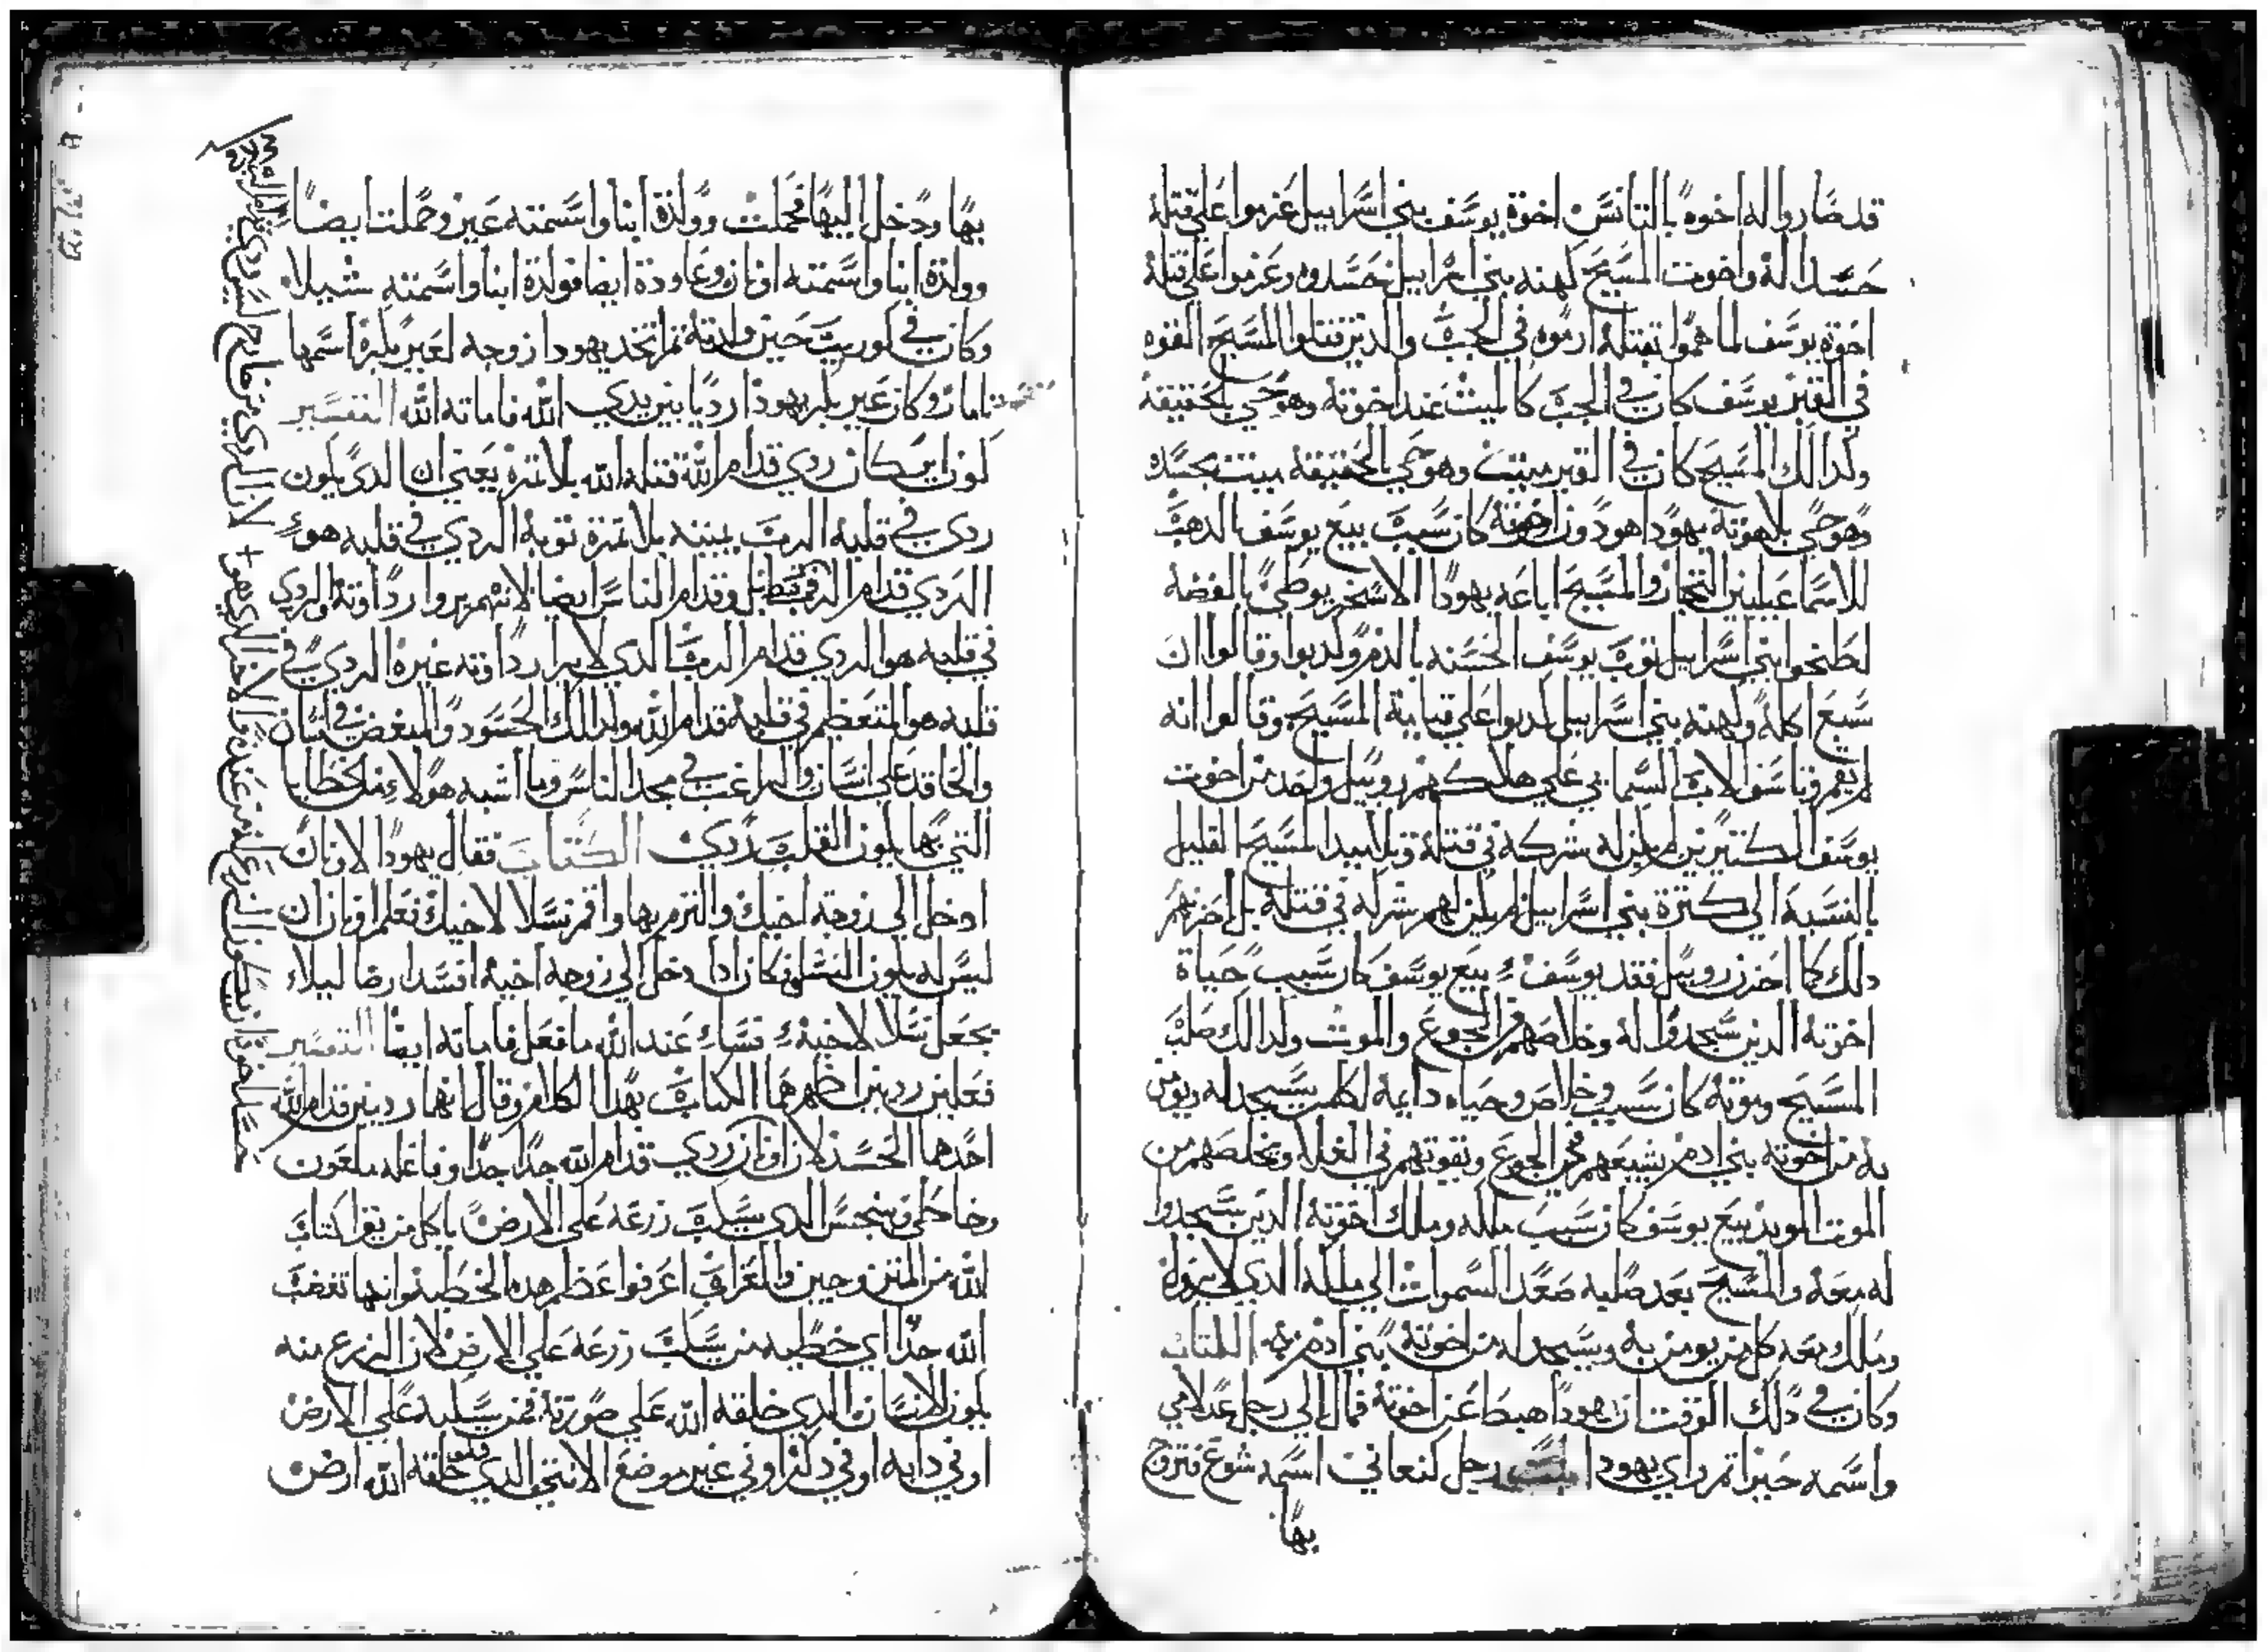 قد صاروا له اخوه بالتانس اخوة يوسف بني اسراييل عزموا علي قتله
حسدا له واخوت المسيح كهنه بني اسراييل حسدوه وعزموا علي قتله
اخوة يوسف لما هموا بقتله ارموه في الجب والدين قتلوا المسيح القوه
في القبر يوسف كان في الجب كالميت عند اخوته وهو حي بالحقيقة
ولدالك المسيح كان في القبر ميت وهو حي بالحقيقة ميت بجسده
وهو حي بلاهوته يهودا هو دون اخوته كان سبب بيع يوسف الدهب
للاسماعيليين التجار والمسيح اباعه يهودا الاسخريوطي بالفضه
لطخوا بني اسراييل توب يوسف الحسنه بالدم وكدبوا وقالوا ان
سبع اكله وكهنه بني اسراييل كدبوا علي قيامة المسيح وقالوا انه
لم يقم وتاسف الاب السمايي علي هلاكهم روبيل واحد من اخوت
يوسف الكتيرين لم يكن له شركه في قتله وتلاميد المسيح القليل
بالنسبة الي كترة بني اسراييل لم يكن لهم شركه في قتله بل احزنهم
دلك كما احزن روبيل فقد يوسف بيع يوسف كان سبب حياة
اخوته الدين سجدوا له وخلاصهم من الجوع والموت ولدالك صلب
المسيح وموته كان سبب وخلاص وحياه دايمة لكلمن يسجد له ويومن
به من اخوته بني ادم يشبعهم من الجوع ويقوتهم في الغلا ويخلصهم من
الموت الموبد بيع يوسف كان سبب ملكه وملك اخوته الدين سجدوا
له معه والمسيح بعد صلبه صعد السموات الي ملكه الدي لا يزول
وملك معه كل من يومن به ويسجد له من اخوته بني ادم الكتاب
وكان في دلك الوقت ان يهودا هبط عن اخوته فمال الي رجل عدلامي
واسمه حيرا تم راي يهودا رجل كنعاني اسمه شوع فتزوج
بها
بها ودخل اليها فحملت وولدة ابنا واسمته عير وحملت ايضا
وولدة ابنا واسمته اونان وعاودة ايضا فولدة ابنا واسمته شيلا
وكان في كورييت حين ولدته تم اتخد يهودا زوجه لعير بكره اسمها
تامار وكان عير بكر يهودا رديا بين يدي الله فاماته الله التفسير
لون اير كان ردي قدام الله فقتله الله بلا تمرة يعني ان الدي يكون
ردي في قلبه الرب يميته بلا تمرة توبة الردي في قلبه هو
الردي قدام الرب وقدام الناس ايضا لانهم يروا رداوته والردي
في قلبه هو الردي قدام الرب الدي لا يرا رداوته غيره الردي في
قلبه هو المتعظم في قلبه قدام الله ولدلك الحسود والمبغض في لسان
والحاقد علي انسان والراغب في مجد الناس وما اشبه هولاء من الخطايا
التي بها يكون القلب ردي الكتاب فقال يهودا لاونان
ادخل الي زوجة اخيك والتزم بها واقم نسلا لاخيك فعلم اونان ان
ليس له يكون النسل فكان ادا دخل الي زوجة اخيه افسد ارضا ليلاء
يجعل نسلا لاخيه فساء عند الله ما فعل فاماته ايضا التفسير
فعلين رديين اظهرهما الكتاب بهدا الكلام وقال انهما رديين قدام الله
احدهما الحسد لان اونان ردي قدام الله جدا جدا وفاعله ملعون
الدي يسكب زرعه علي الارض يا كل من يقرا كتاب
الله من المتزوجين والعزاب اعرفوا عظم هده الخطيه وانها تغضب
الله جدا اي خطيه من يسكب زرعه علي الارض لان الزرع منه
يكون الانسان الدي خلقه الله علي صورته فمن يسكبه علي الارض
او في دابه او في دكر او في غير موضع الانتى الدي خلقه الله ارض